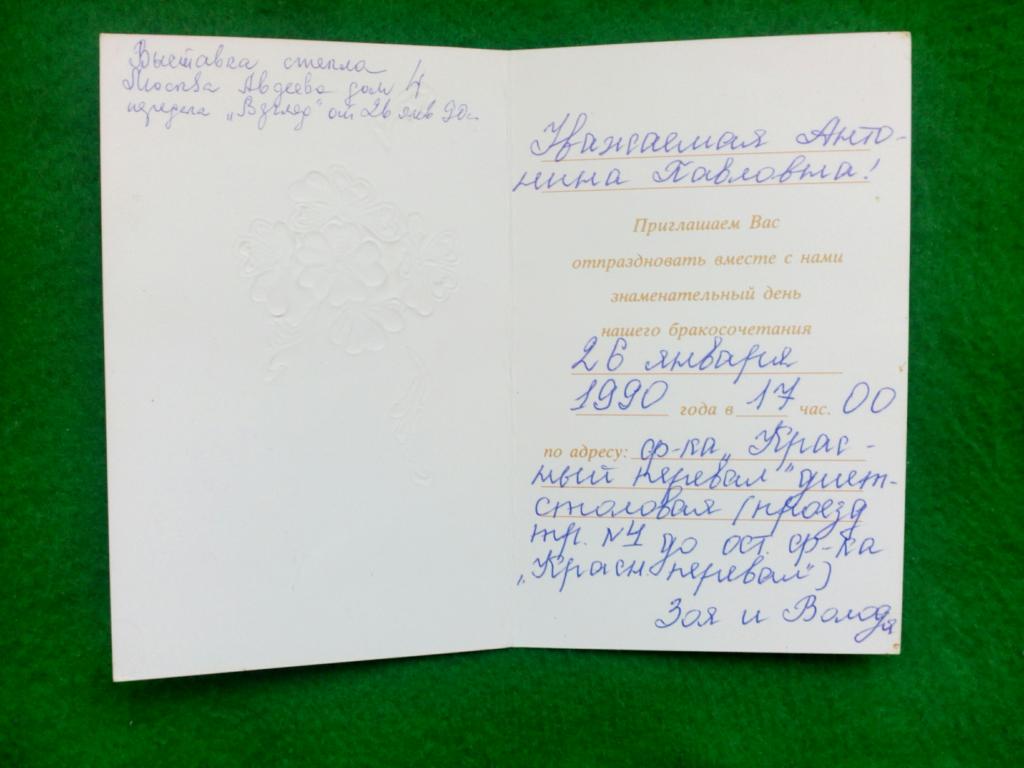 Выставка стекла
Москва Авдеева дом 4
передача „Взгляд" от 26 янв 90г.
Уважаемая Анто-
нина Павловна!
Приглашаем Вас
отпраздновать вместе с нами
знаменательный день
нашего бракосочетания
26 января
1990 года в 17 час. 00
по адресу: ф-ка „Крас-
ный перевал" диет-
столовая (проезд
тр. №4 до ост. ф-ка
„Красн перевал")
Зоя и Володя